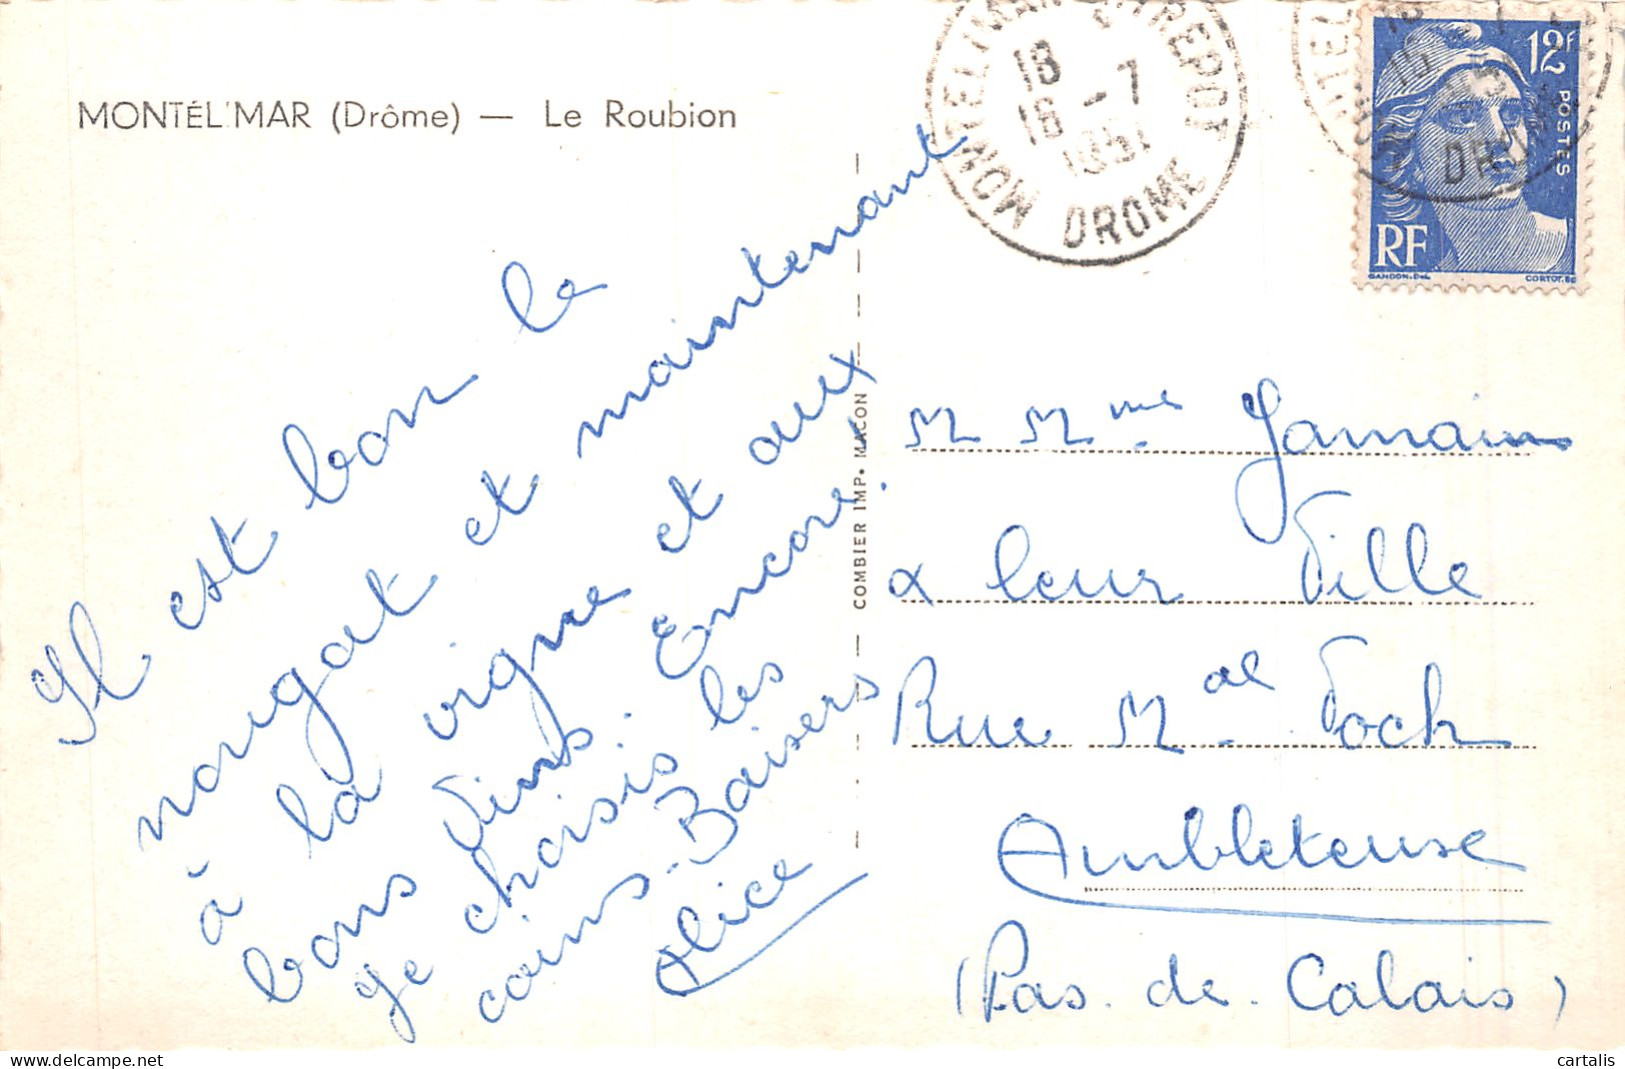 MONTÉL'MAR (Drôme) — Le Roubion
Il est bon le
nougat et maintenant
à la vigne et aux
bons Vins. Encore.
Je choisis les
coins - Baisers
Alice
COMBIER IMP. MACON
MONTELIMAR ENTREPOT
18
16 -7
1951
DROME
18
16 -7
DROME
12F
POSTES
RF
GANDON.DEL
CORTOT.SC
M Mme Jamain
à leur Ville
Rue Mal Foch
Ambleteuse
(Pas. de. Calais)
cartalis